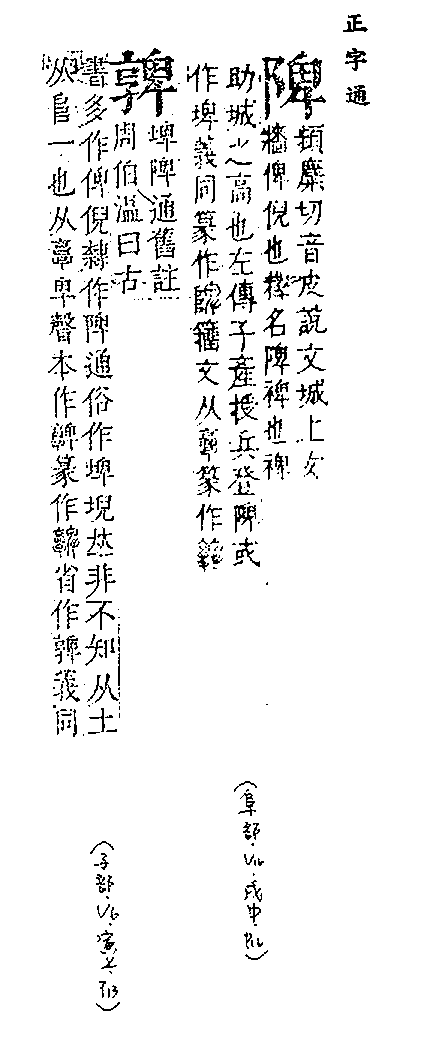 正字通
陴
頻麋切音皮說文城上女
牆俾倪也釋名陴裨也裨
助城之高也左傳子産授兵登陴或
作埤義同篆作籀文从𩫖篆作
埤陴通舊註
周伯溫曰古
書多作俾倪隸作陴通俗作埤堄𠀤非不知从土
从𨸏一也从𩫖卑聲本作篆作省作義同
(阜部
(子部